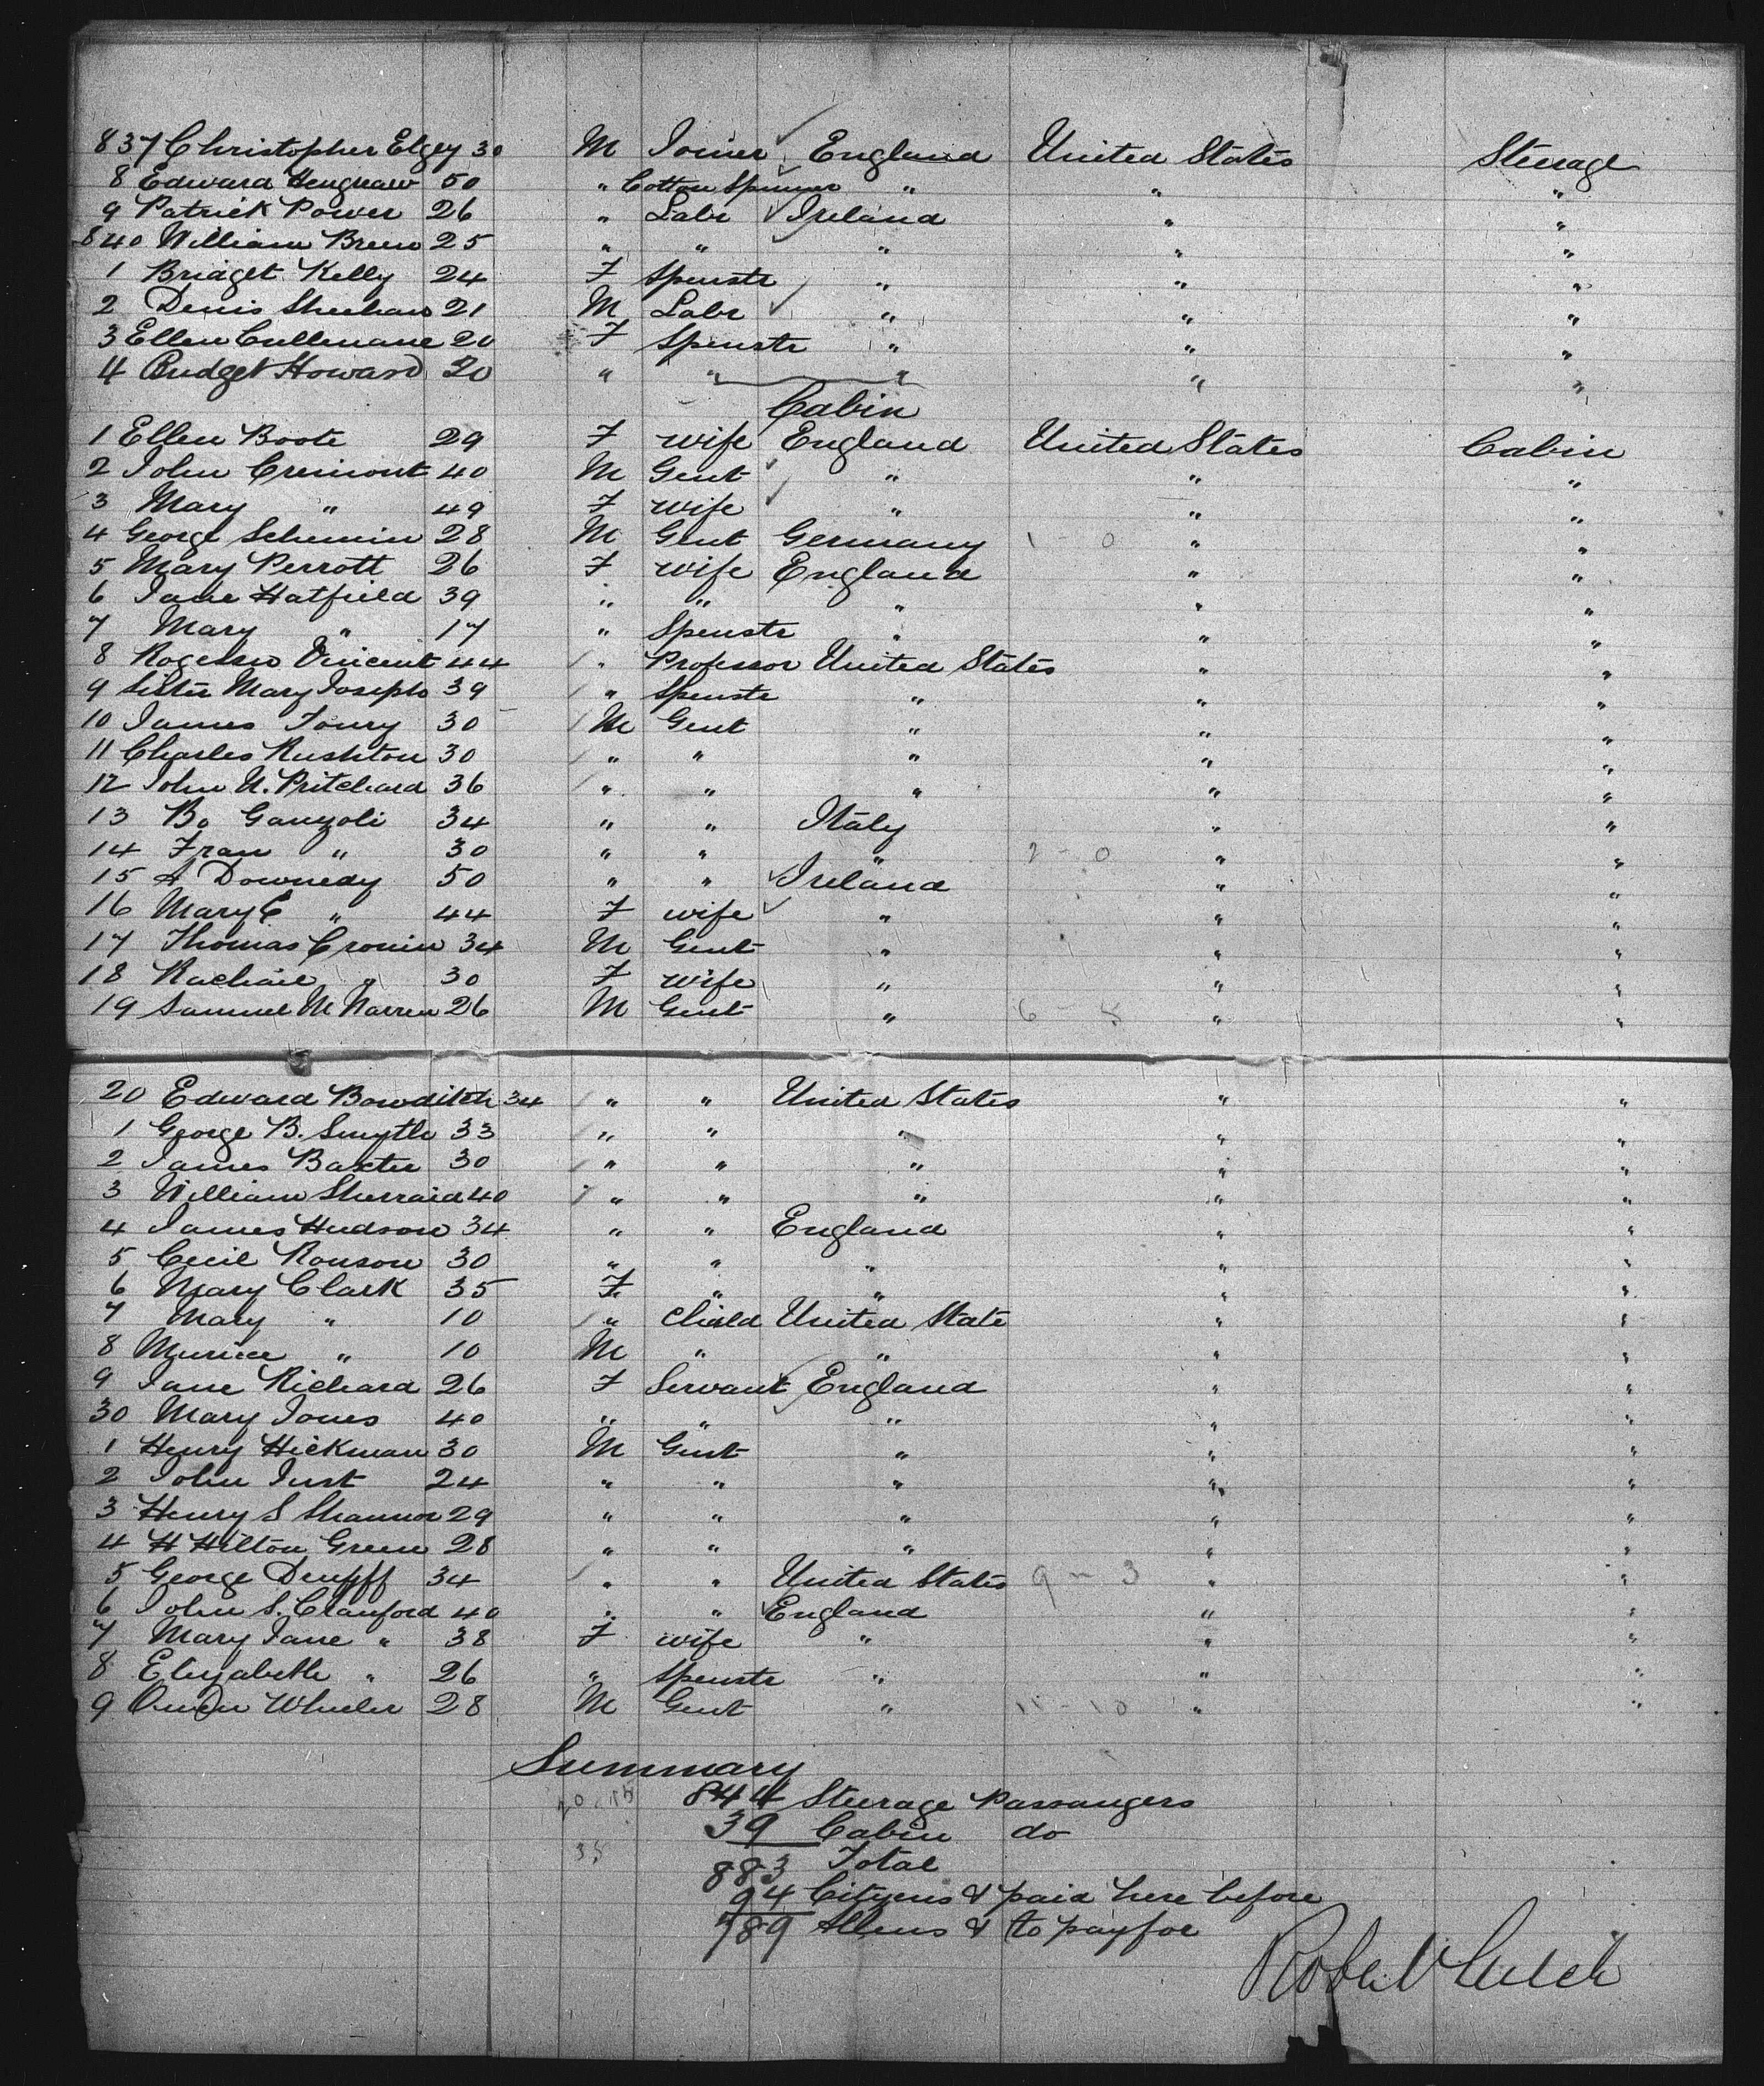 837 Christopher Elgey 30 M Joiner England United States Steerage
8 Edward Hengnaw 50 " Cotton Spinner " " "
9 Patrick Power 26 " Labr Ireland " "
840 William Breen 25 " " " " "
1 Bridget Kelly 24 F Spinstr " " "
2 Denis Sheehan 21 M Labr " " "
3 Ellen Cullenane 20 F Spinstr " " "
4 Bridget Howard 20 " " " " "
Cabin
1 Ellen Boote 29 F wife England United States Cabin
2 John Cremont 40 M Gent " " "
3 Mary " 49 F wife " " "
4 George Schemin 28 M Gent Germany 1 - 0 " "
5 Mary Perrott 26 F wife England " "
6 Jane Hatfield 39 " " " " "
7 Mary " 17 " Spinstr " " "
8 Vincent 44 " Professor United States " "
9 Sister Mary Joseph 39 " Spinstr " " "
10 James Foury 30 M Gent " " "
11 Charles Rushton 30 " " " " "
12 John N. Pritchard 36 " " " " "
13 B. Ganzoli 34 " " Italy " "
14 Fran " 30 " " " 2 - 0 " "
15 A Downedy 50 " " Ireland " "
16 Mary C " 44 F wife " " "
17 Thomas Cronin 34 M Gent " " "
18 Rachael " 30 F wife " " "
19 Samuel M Warren 26 M Gent " 6 - " "
20 Edward Bowditch 34 " " United States " "
1 George B. Smyth 33 " " " " "
2 James Baxter 30 " " " " "
3 William Sherraid 40 " " " " "
4 James Hudson 34 " " England " "
5 Cecil Ronson 30 " " " " "
6 Mary Clark 35 F " " " "
7 Mary " 10 " Child United State " "
8 Murice " 10 M " " " "
9 Jane Richard 26 F Servant England " "
30 Mary Jones 40 " " " " "
1 Henry Hickman 30 M Gent " " "
2 John Just 24 " " " " "
3 Henry S Shannon 29 " " " " "
4 H Hilton Green 28 " " " " "
5 George 34 " " United States 9 - 3 " "
6 John S. Clanford 40 " " England " "
7 Mary Jane " 38 F wife " " "
8 Elizabeth " 26 " Spinstr " " "
9 Owen Wheeler 28 M Gent " 11 - 10 " "
Summary
844 Steerage Passangers
39 Cabin do
883 Total
94 Cityens & paid here before
789 Aliens & to pay for
Robert Leech